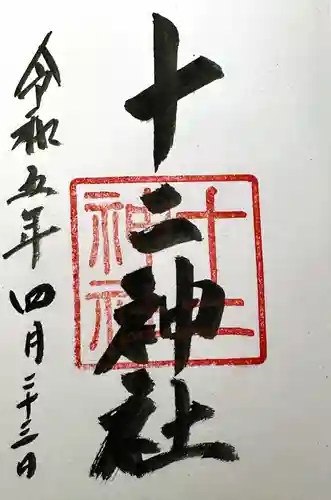 十二神社
令和五年四月二十三日
十二
神社